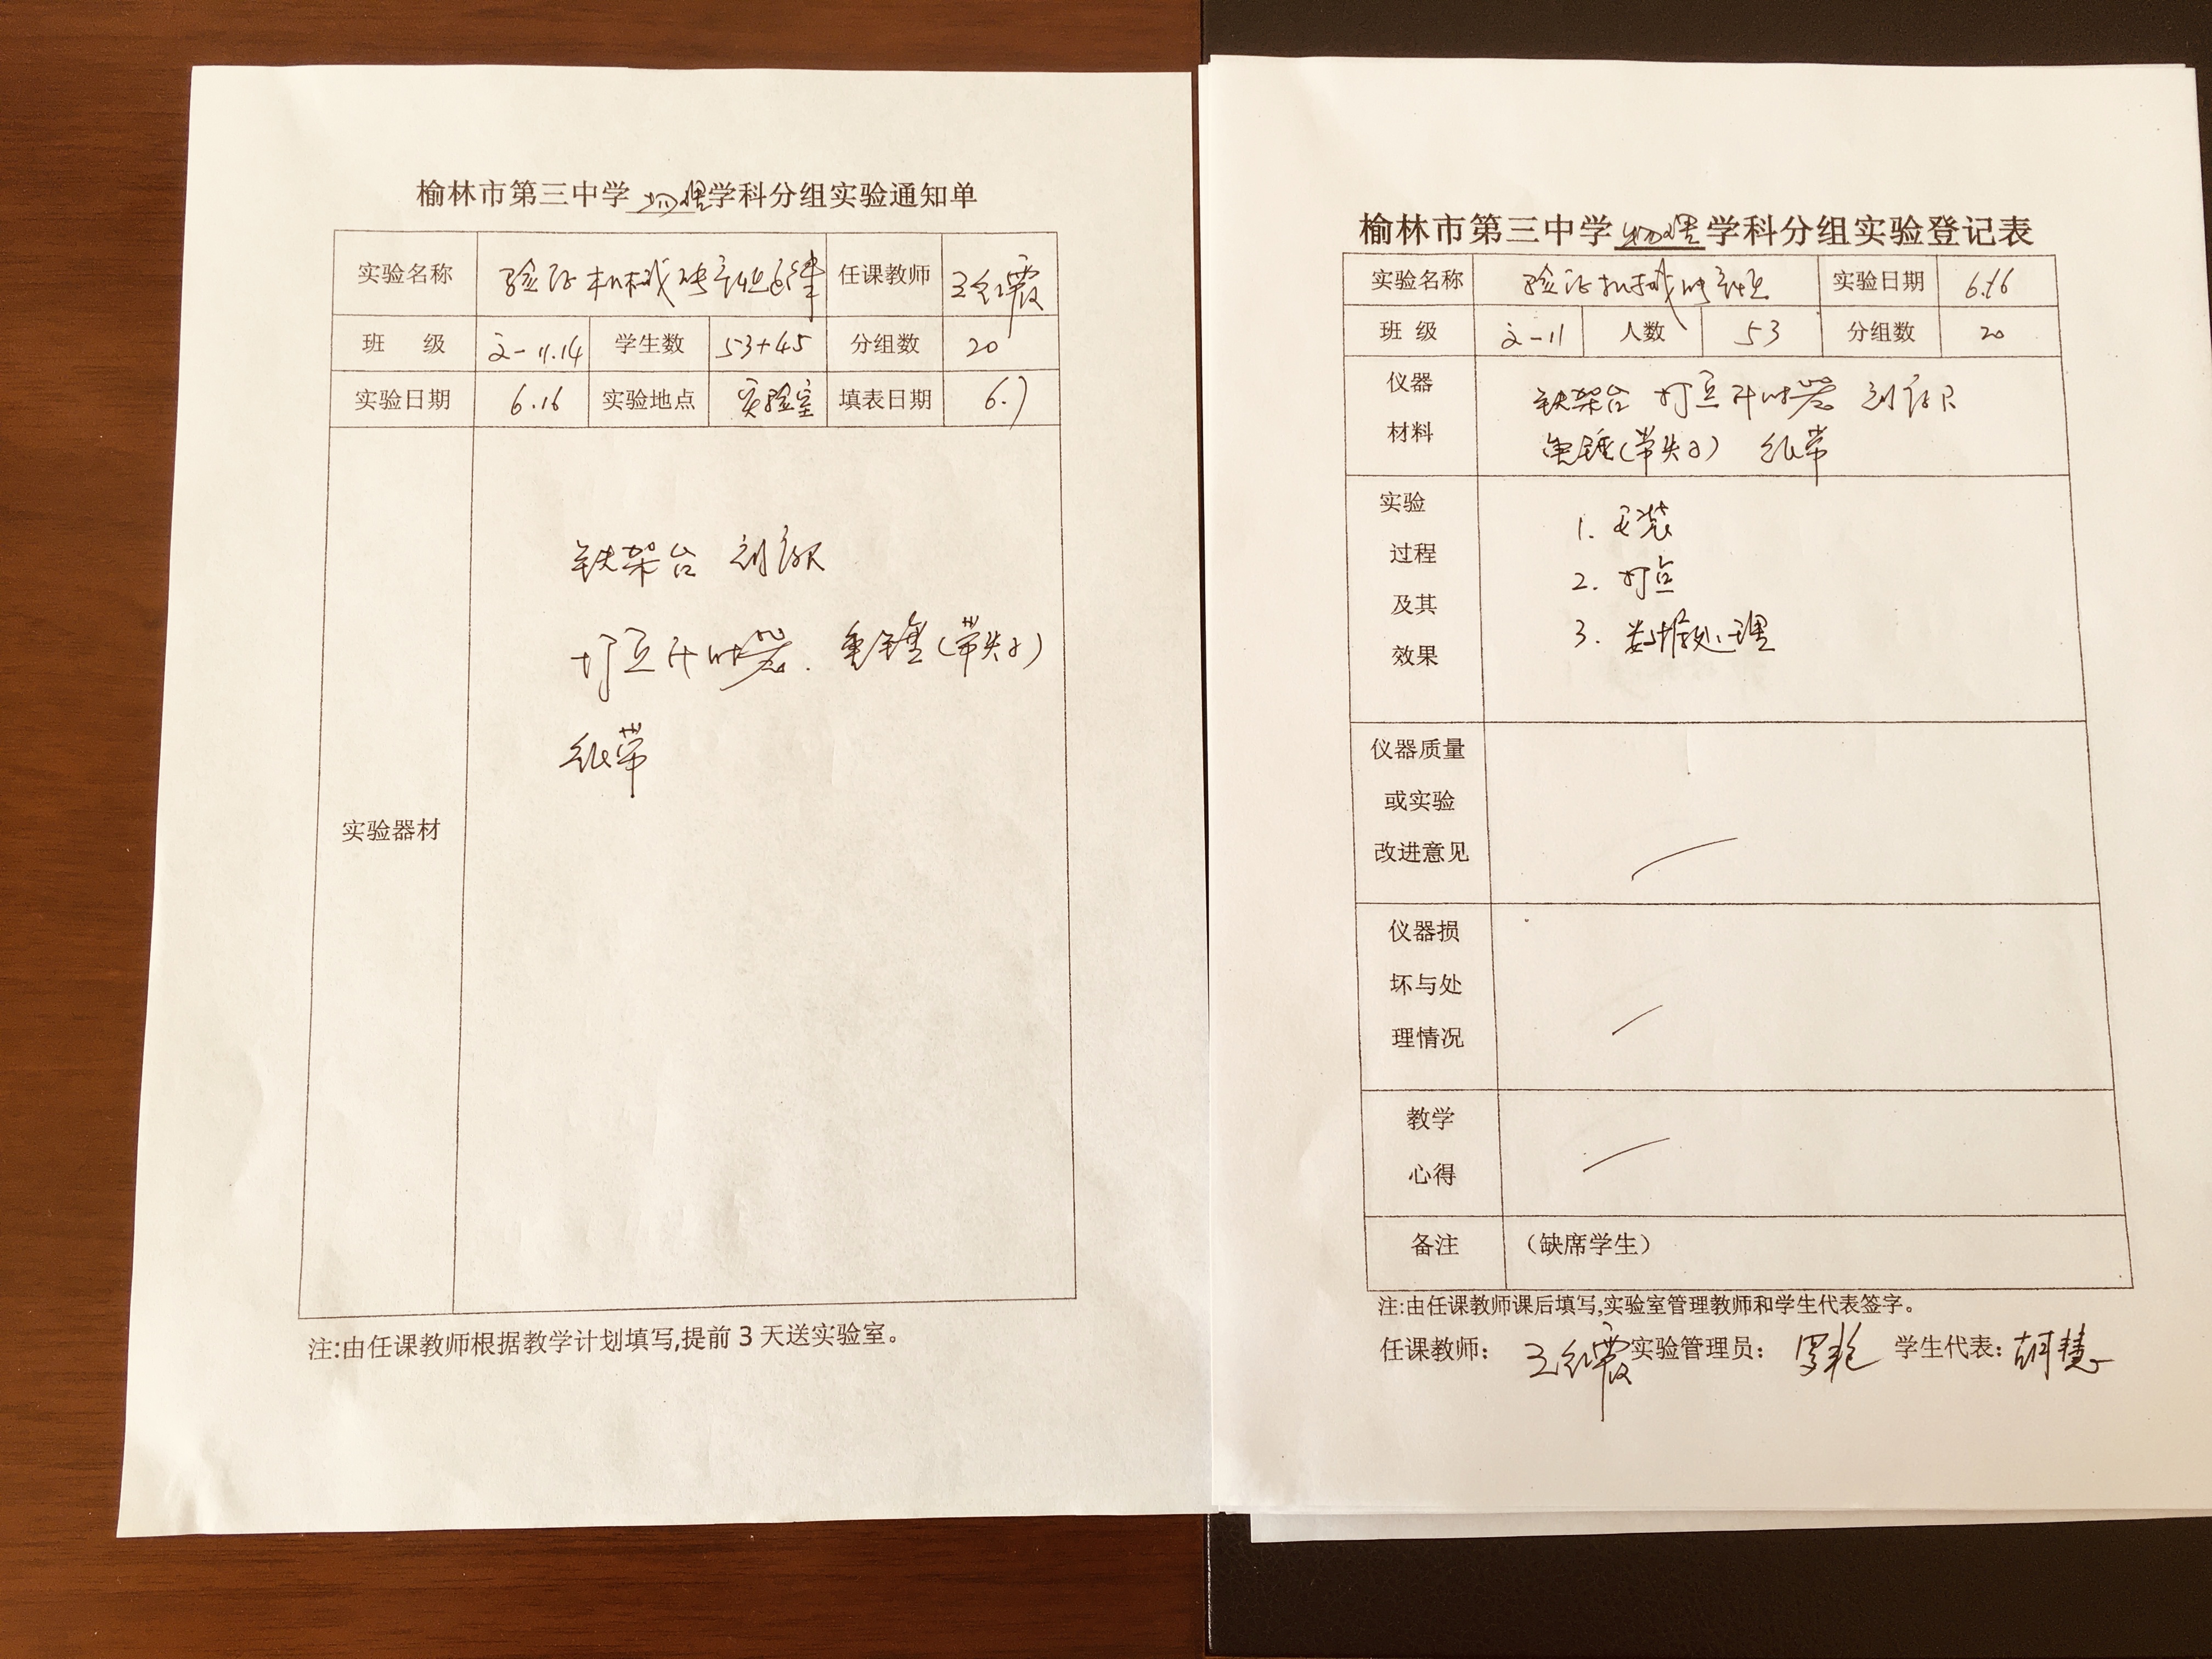 榆林市第三中学 物理 学科分组实验通知单
实验名称 验证机械能守恒定律 任课教师 王红霞
班 级 高一11.14 学生数 53+45 分组数 20
实验日期 6.16 实验地点 实验室 填表日期 6.7
实验器材
铁架台 刻度尺
打点计时器. 重锤(带夹子)
纸带
注:由任课教师根据教学计划填写,提前3天送实验室。
榆林市第三中学 物理 学科分组实验登记表
实验名称 验证机械能守恒 实验日期 6.16
班 级 高一11 人数 53 分组数 20
仪器
材料
铁架台 打点计时器 刻度尺
重锤(带夹子) 纸带
实验
过程
及其
效果
1. 安装
2. 打点
3. 数据处理
仪器质量
或实验
改进意见
仪器损
坏与处
理情况
教学
心得
备注 (缺席学生)
注:由任课教师课后填写,实验室管理教师和学生代表签字。
任课教师: 王红霞 实验管理员: 学生代表: 胡慧